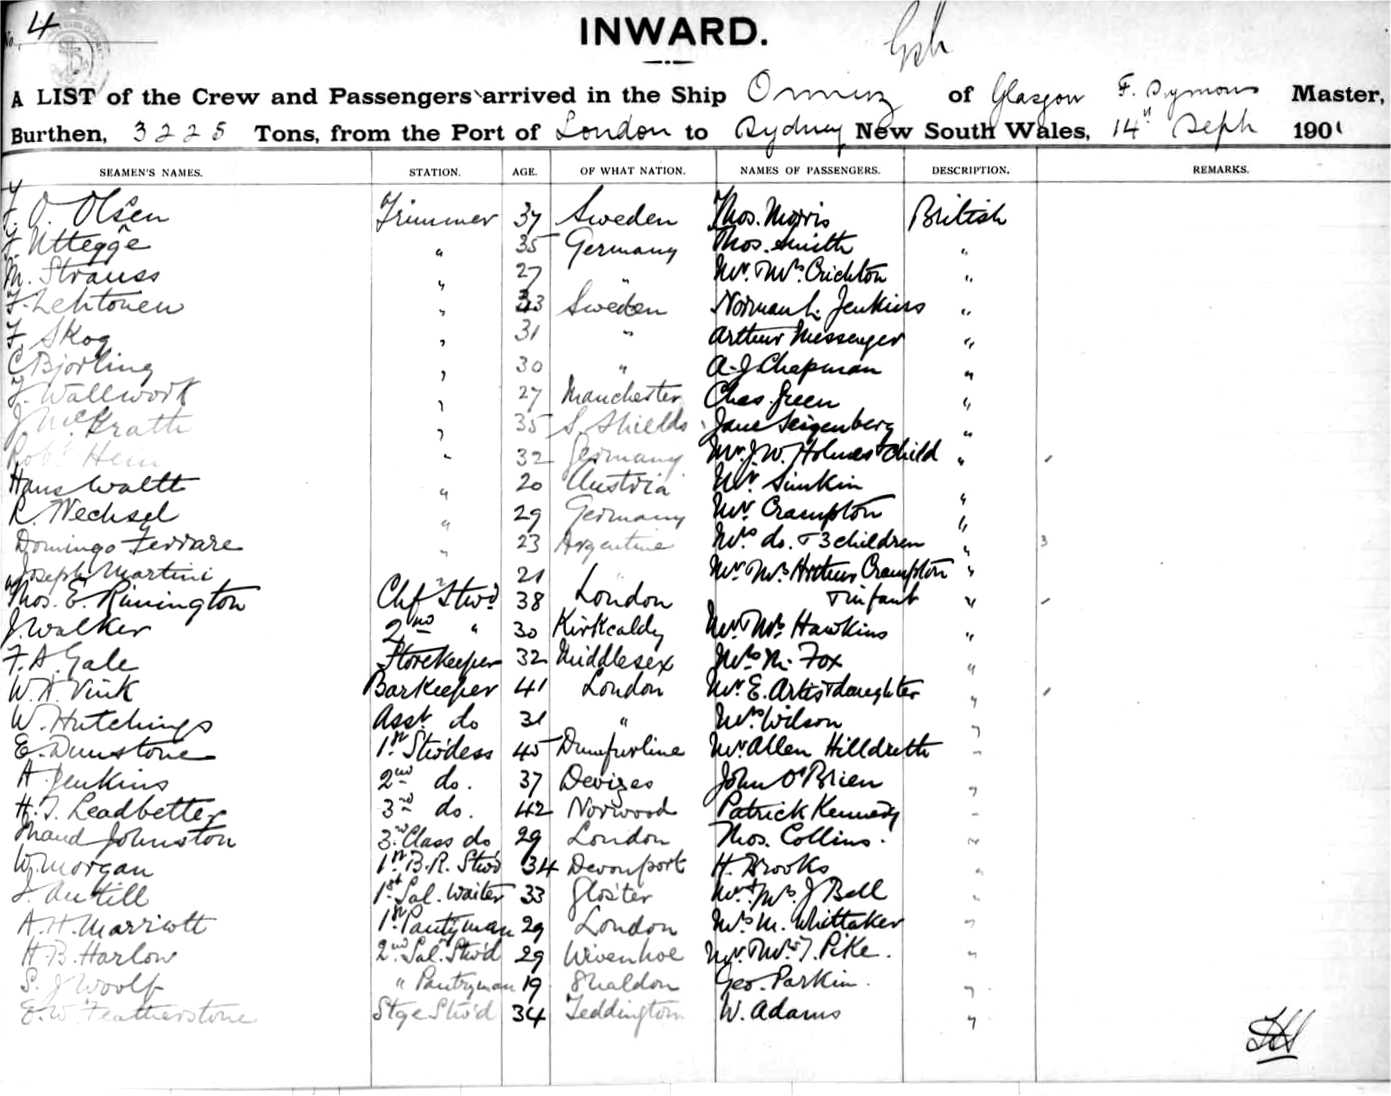 No. 4
INWARD.
A LIST of the Crew and Passengers arrived in the Ship Ormuz of Glasgow F. Symons Master,
Burthen, 3225 Tons, from the Port of London to Sydney New South Wales, 14th Sept 1901
SEAMEN'S NAMES. STATION. AGE. OF WHAT NATION. NAMES OF PASSENGERS. DESCRIPTION. REMARKS.
O. Olsen Trimmer 37 Sweden Thos. Morris British
F. Uttegge " 35 Germany Thos. Smith "
M. Strauss " 27 " Mr. & Mrs Crichton "
F. Lehtonen " 33 Sweden Norman L. Jenkins "
F. Skog " 31 " Arthur Messenger "
C. Bjorling " 30 " A. J. Chapman "
F. Wallwork " 27 Manchester Chas. Green "
J. McGrath " 35 S. Shields Jane Seigenberg "
Robt. Hein " 32 Germany Mr. J. W. Holmes & child "
Hans Waltt " 20 Austria Mr. Simkin "
R. Wechsel " 29 Germany Mr Crampton "
Domingo Ferrare " 23 Argentine Mrs do. & 3 children " 3
Joseph Martini " 21 " Mr. & Mrs Crampton "
Thos. E. Rimington Chf Stwd 38 London & infant "
J. Walker 2nd " 30 Kirkcaldy Mr. & Mrs Hawkins "
F. A. Gale Storekeeper 32 Middlesex Mrs M. Fox "
W. A. Vink Barkeeper 41 London Mr. E. Artis & daughter "
W. Hutchings Asst. do 31 " Mrs. Wilson "
E. Dunstone 1st Stwdess 45 Dumfurline Mr Allen Hilldreth "
A. Jenkins 2nd do. 37 Devizes John O'Brien "
H. T. Leadbetter 3rd do. 42 Norwood Patrick Kennedy "
Maud Johnston 3rd Class do 29 London Thos. Collins. "
W. Morgan 1st B.R. Stwd 34 Devonport H. Brooks "
J. Antill 1st Sal. Waiter 33 Glo'ster Mr & Mrs J Bell "
A. H. Marriott 1st Pantryman 29 London Mrs M. Whittaker "
H. B. Harlow 2nd Sal. Stwd 29 Wivenhoe Mr. & Mrs T. Pike. "
S. J. Woolf " Pantryman 19 Shaldon Geo. Parkin. "
E. W. Featherstone Stge Stwd 34 Teddington W. Adams "